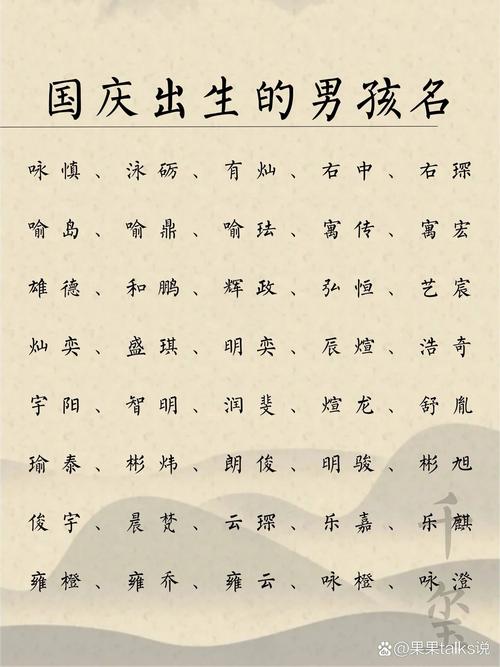 国庆出生的男孩名
咏慎、泳砺、有灿、右中、右琛
喻岛、喻鼎、喻珐、寓传、寓宏
雄德、和鹏、辉政、弘恒、艺宸
灿奕、盛琪、明奕、辰煊、浩奇
宇阳、智明、润斐、煊龙、舒胤
瑜泰、彬炜、朗俊、明骏、彬旭
俊宇、晨梵、云琛、乐嘉、乐麒
雍橙、雍乔、雍云、咏橙、咏澄
千玺
@果果talks说